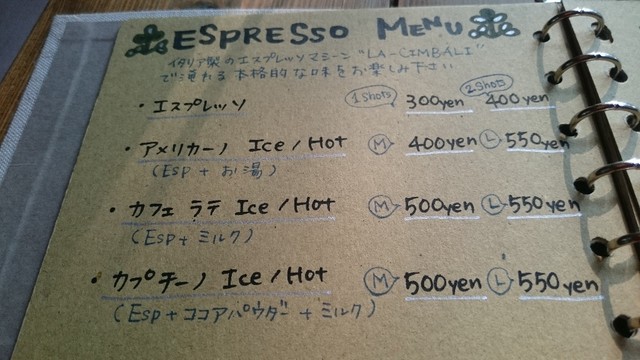 ESPRESSO MENU
イタリア製のエスプレッソマシーン "LA-CIMBALI"
で淹れる本格的な味をお楽しみ下さい
・エスプレッソ 1shots 300yen 2shots 400yen
・アメリカーノ Ice / Hot M 400yen L 550yen
(Esp + お湯)
・カフェ ラテ Ice / Hot M 500yen L 550yen
(Esp + ミルク)
・カプチーノ Ice / Hot M 500yen L 550yen
(Esp + ココアパウダー + ミルク)